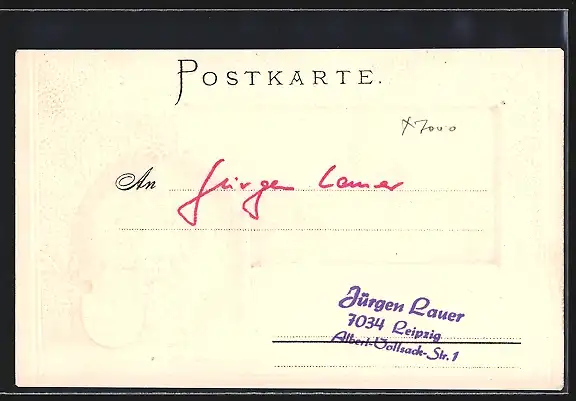 POSTKARTE.
x7000
An Jürgen Lauer
Jürgen Lauer
7034 Leipzig
Albert-Vollsack-Str. 1